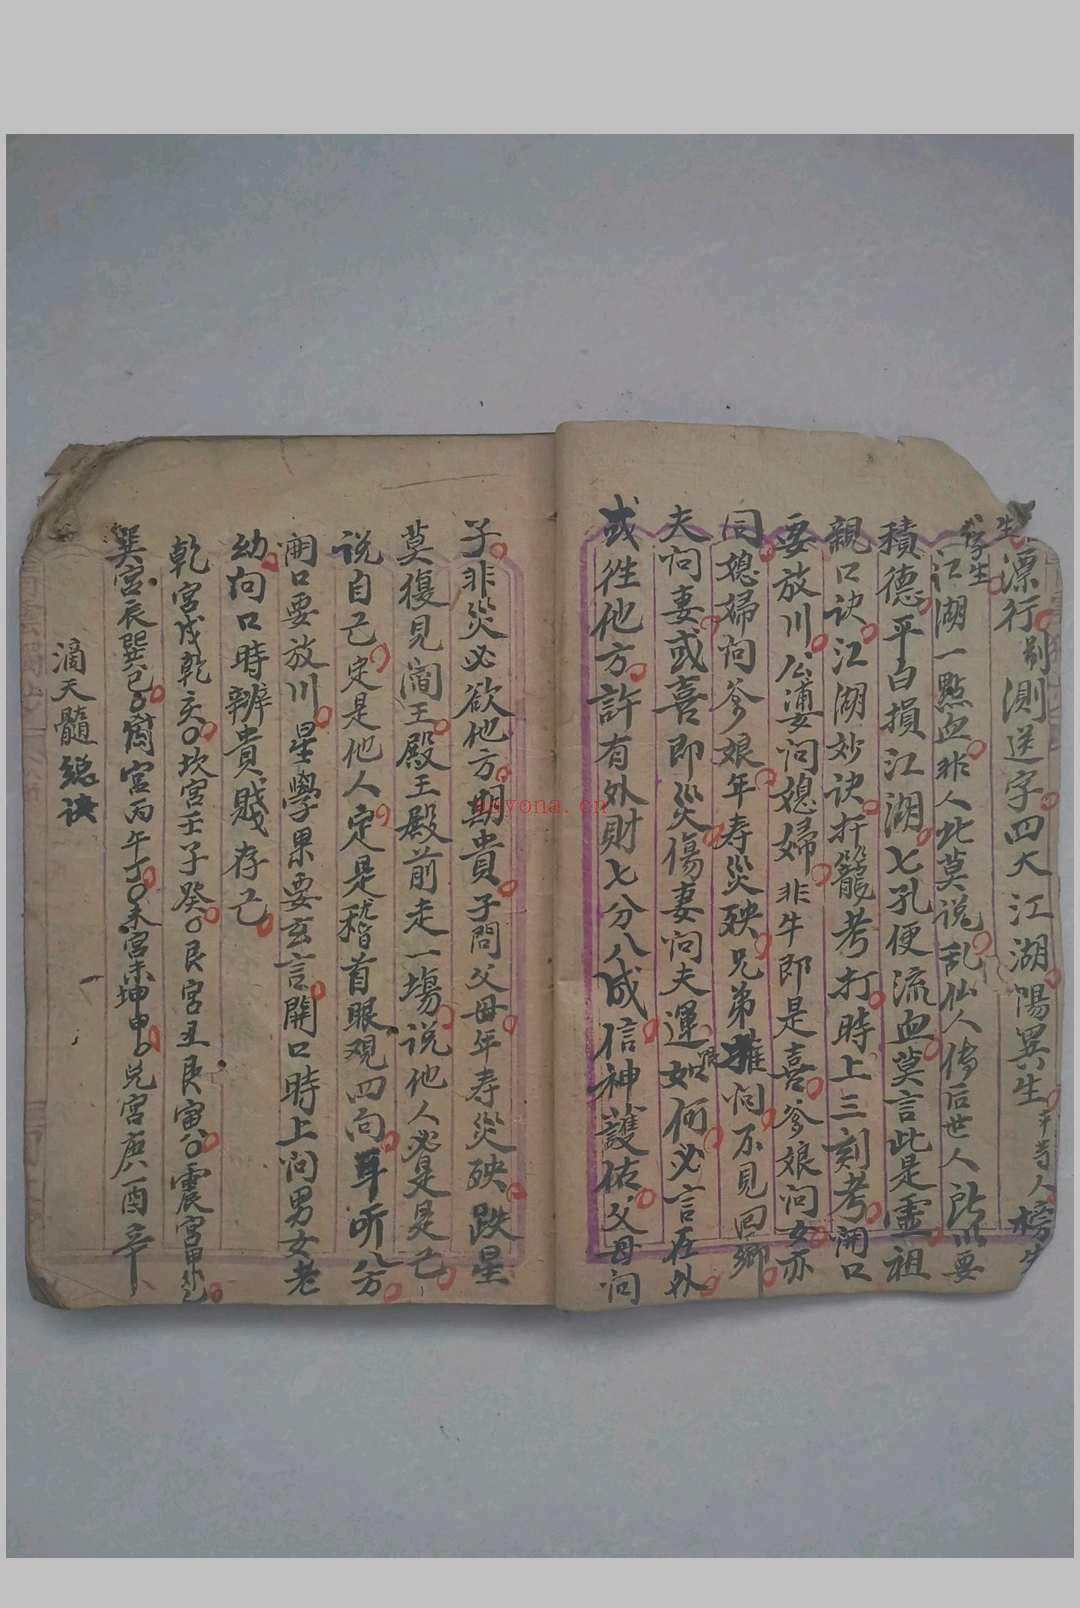 生漂行剐測送字四大江湖陽異生辛等人榜生
江湖一點血非人此莫说乱仙人傳后世人所以要
積德平白損江湖七孔便流血莫言此是靈祖
親口诀江湖妙诀扞籠考打時上三刻考開口
要放川公婆问媳婦非牛即是喜爹娘问女亦
同媳婦问爹娘年寿災殃兄弟问不見回鄉
夫问妻或喜即災傷妻问夫運如何必言在外
或往他方許有外財七分八成信神護佑父母问
子非災必欲他方期貴子問父母年寿災殃跌星
莫復見閻王殿王殿前走一場说他人必是是己
说自己定是他人定是稽首眼观四向耳听八方
開口要放川星學果要玄言開口時上问男女老
幼向口時辨貴賤存己
乾宮戌乾亥坎宮壬子癸艮宮丑艮寅震宮甲卯乙
巽宮辰巽巳宮丙午丁未宮未坤申兑宮庚酉辛
滴天髓總诀
nayona.cn